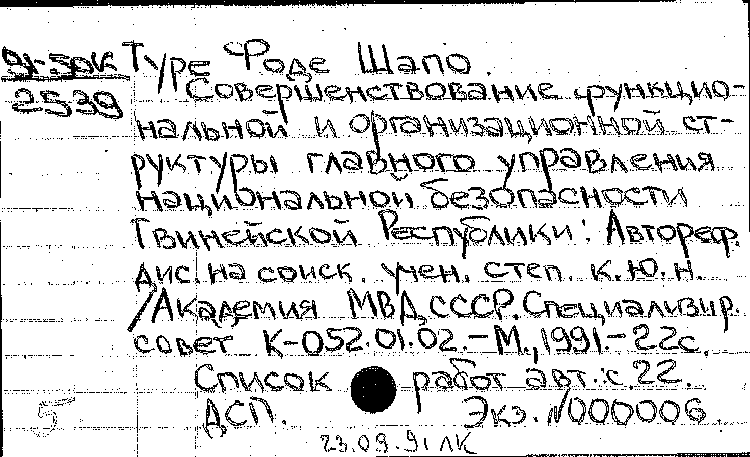 91-50К Туре Фоде Шапо.
2539 Совершенствование функцио-
нальной и организационной ст-
руктуры главного управления
национальной безопасности
Гвинейской Республики: Автореф.
дис. на соиск. учен. степ. к.ю.н.
/Академия МВД СССР. Специализир.
совет К-052.01.02.-М., 1991.-22с.
Список работ авт.: с 22.
5 ДСП. Экз. N000006.
23.09.91 ЛК